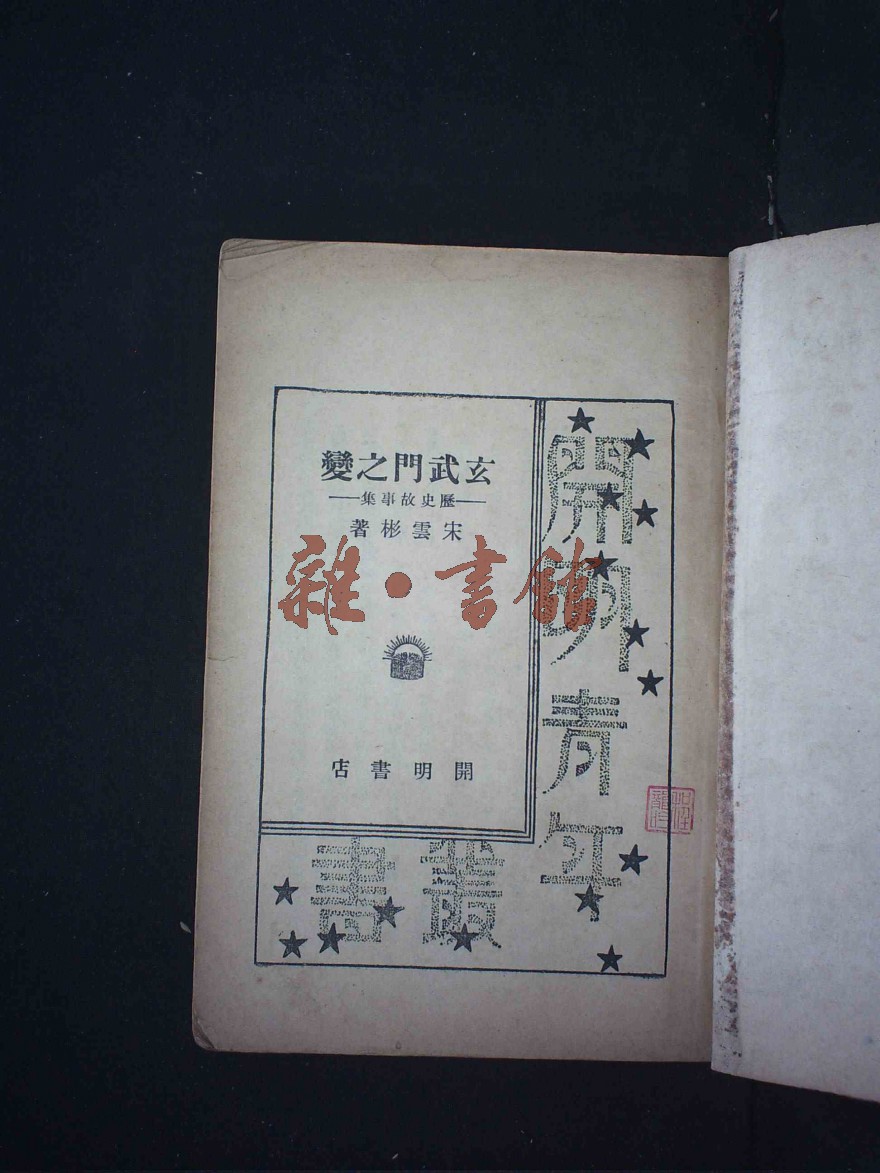 玄武門之變
——歷史故事集——
宋雲彬著
雜·書館
開明書店
開明青年
叢書